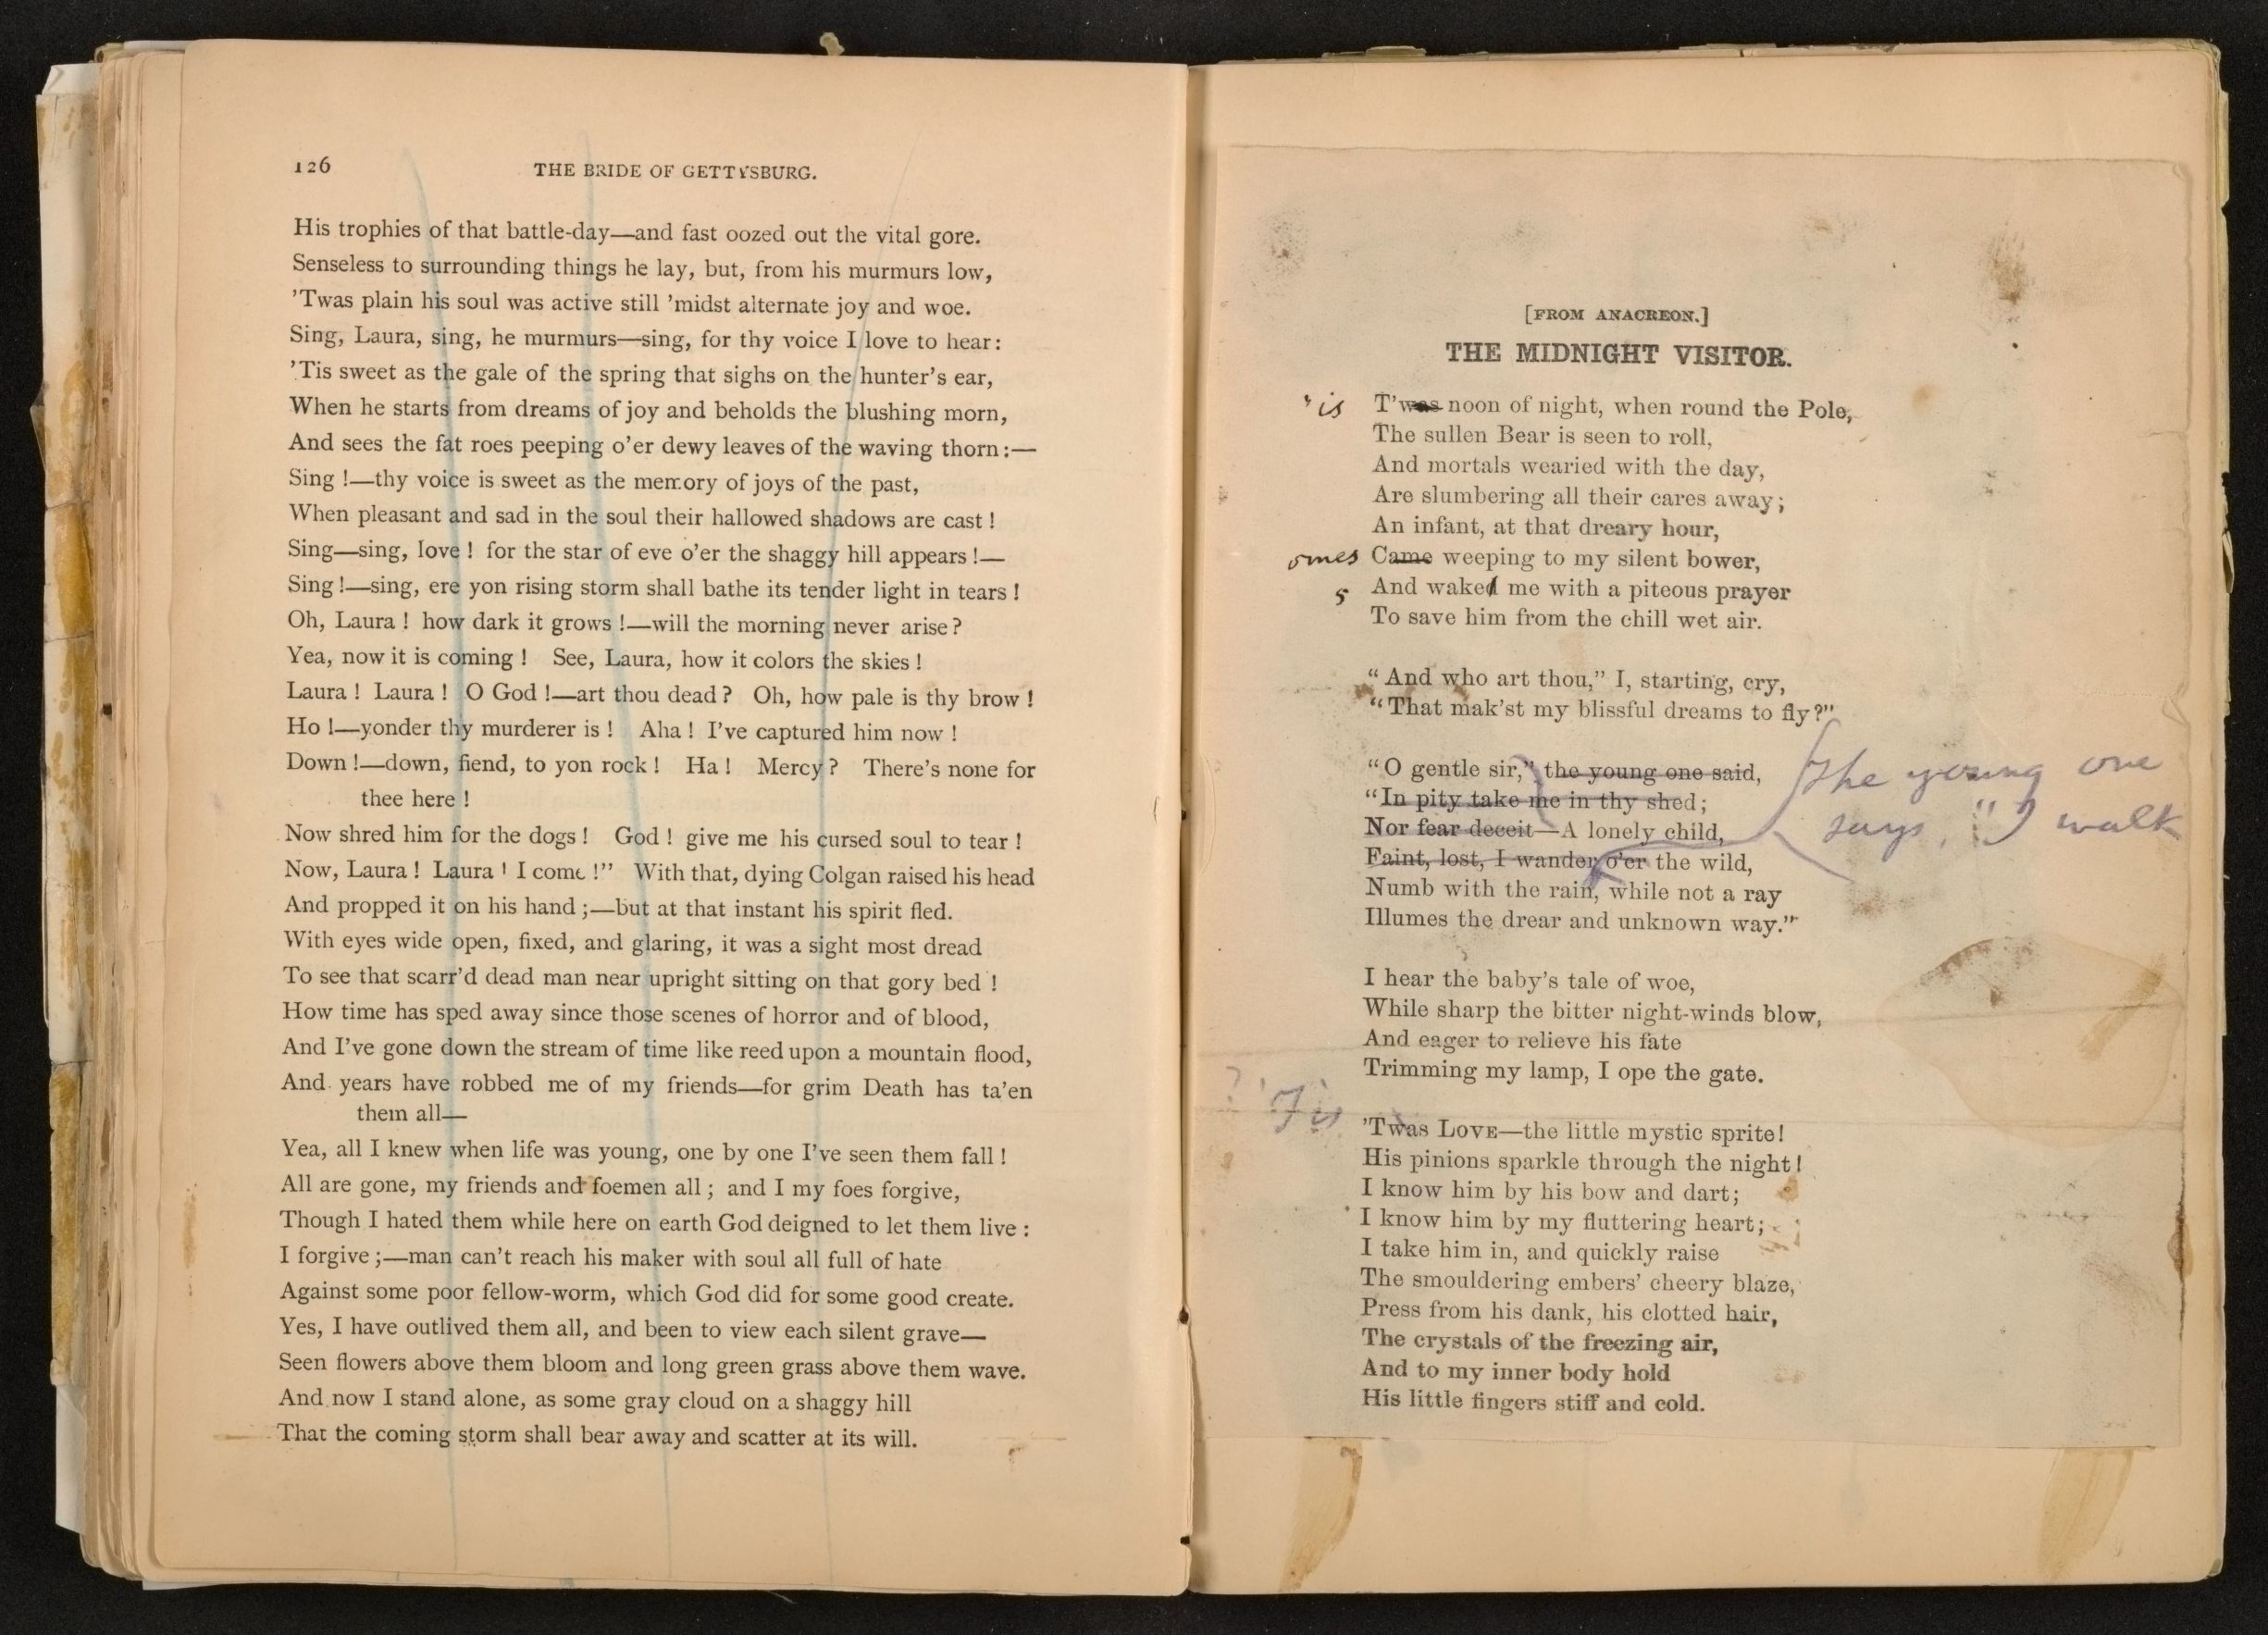 126
THE BRIDE OF GETTYSBURG.
His trophies of that battle-day—and fast oozed out the vital gore.
Senseless to surrounding things he lay, but, from his murmurs low,
’Twas plain his soul was active still ’midst alternate joy and woe.
Sing, Laura, sing, he murmurs—sing, for thy voice I love to hear:
’Tis sweet as the gale of the spring that sighs on the hunter’s ear,
When he starts from dreams of joy and beholds the blushing morn,
And sees the fat roes peeping o’er dewy leaves of the waving thorn:—
Sing !—thy voice is sweet as the memory of joys of the past,
When pleasant and sad in the soul their hallowed shadows are cast !
Sing—sing, love ! for the star of eve o’er the shaggy hill appears !—
Sing !—sing, ere yon rising storm shall bathe its tender light in tears !
Oh, Laura ! how dark it grows !—will the morning never arise ?
Yea, now it is coming ! See, Laura, how it colors the skies !
Laura ! Laura ! O God !—art thou dead ? Oh, how pale is thy brow !
Ho !—yonder thy murderer is ! Aha ! I’ve captured him now !
Down !—down, fiend, to yon rock ! Ha ! Mercy ? There’s none for
thee here !
Now shred him for the dogs ! God ! give me his cursed soul to tear !
Now, Laura ! Laura ! I come !” With that, dying Colgan raised his head
And propped it on his hand ;—but at that instant his spirit fled.
With eyes wide open, fixed, and glaring, it was a sight most dread
To see that scarr’d dead man near upright sitting on that gory bed !
How time has sped away since those scenes of horror and of blood,
And I’ve gone down the stream of time like reed upon a mountain flood,
And years have robbed me of my friends—for grim Death has ta’en
them all—
Yea, all I knew when life was young, one by one I’ve seen them fall !
All are gone, my friends and foemen all ; and I my foes forgive,
Though I hated them while here on earth God deigned to let them live :
I forgive ;—man can’t reach his maker with soul all full of hate
Against some poor fellow-worm, which God did for some good create.
Yes, I have outlived them all, and been to view each silent grave—
Seen flowers above them bloom and long green grass above them wave.
And now I stand alone, as some gray cloud on a shaggy hill
That the coming storm shall bear away and scatter at its will.
[FROM ANACREON.]
THE MIDNIGHT VISITOR.
'is T’was noon of night, when round the Pole,
The sullen Bear is seen to roll,
And mortals wearied with the day,
Are slumbering all their cares away;
An infant, at that dreary hour,
omes Came weeping to my silent bower,
s And waked me with a piteous prayer
To save him from the chill wet air.
“And who art thou,” I, starting, cry,
“That mak’st my blissful dreams to fly?”
“O gentle sir,” the young one said,
“In pity take me in thy shed;
Nor fear deceit—A lonely child,
Faint, lost, I wander o’er the wild,
the young one
says, "I walk
Numb with the rain, while not a ray
Illumes the drear and unknown way.”
I hear the baby’s tale of woe,
While sharp the bitter night-winds blow,
And eager to relieve his fate
Trimming my lamp, I ope the gate.
? 'Tis
’Twas LOVE—the little mystic sprite!
His pinions sparkle through the night!
I know him by his bow and dart;
I know him by my fluttering heart;
I take him in, and quickly raise
The smouldering embers’ cheery blaze,
Press from his dank, his clotted hair,
The crystals of the freezing air,
And to my inner body hold
His little fingers stiff and cold.